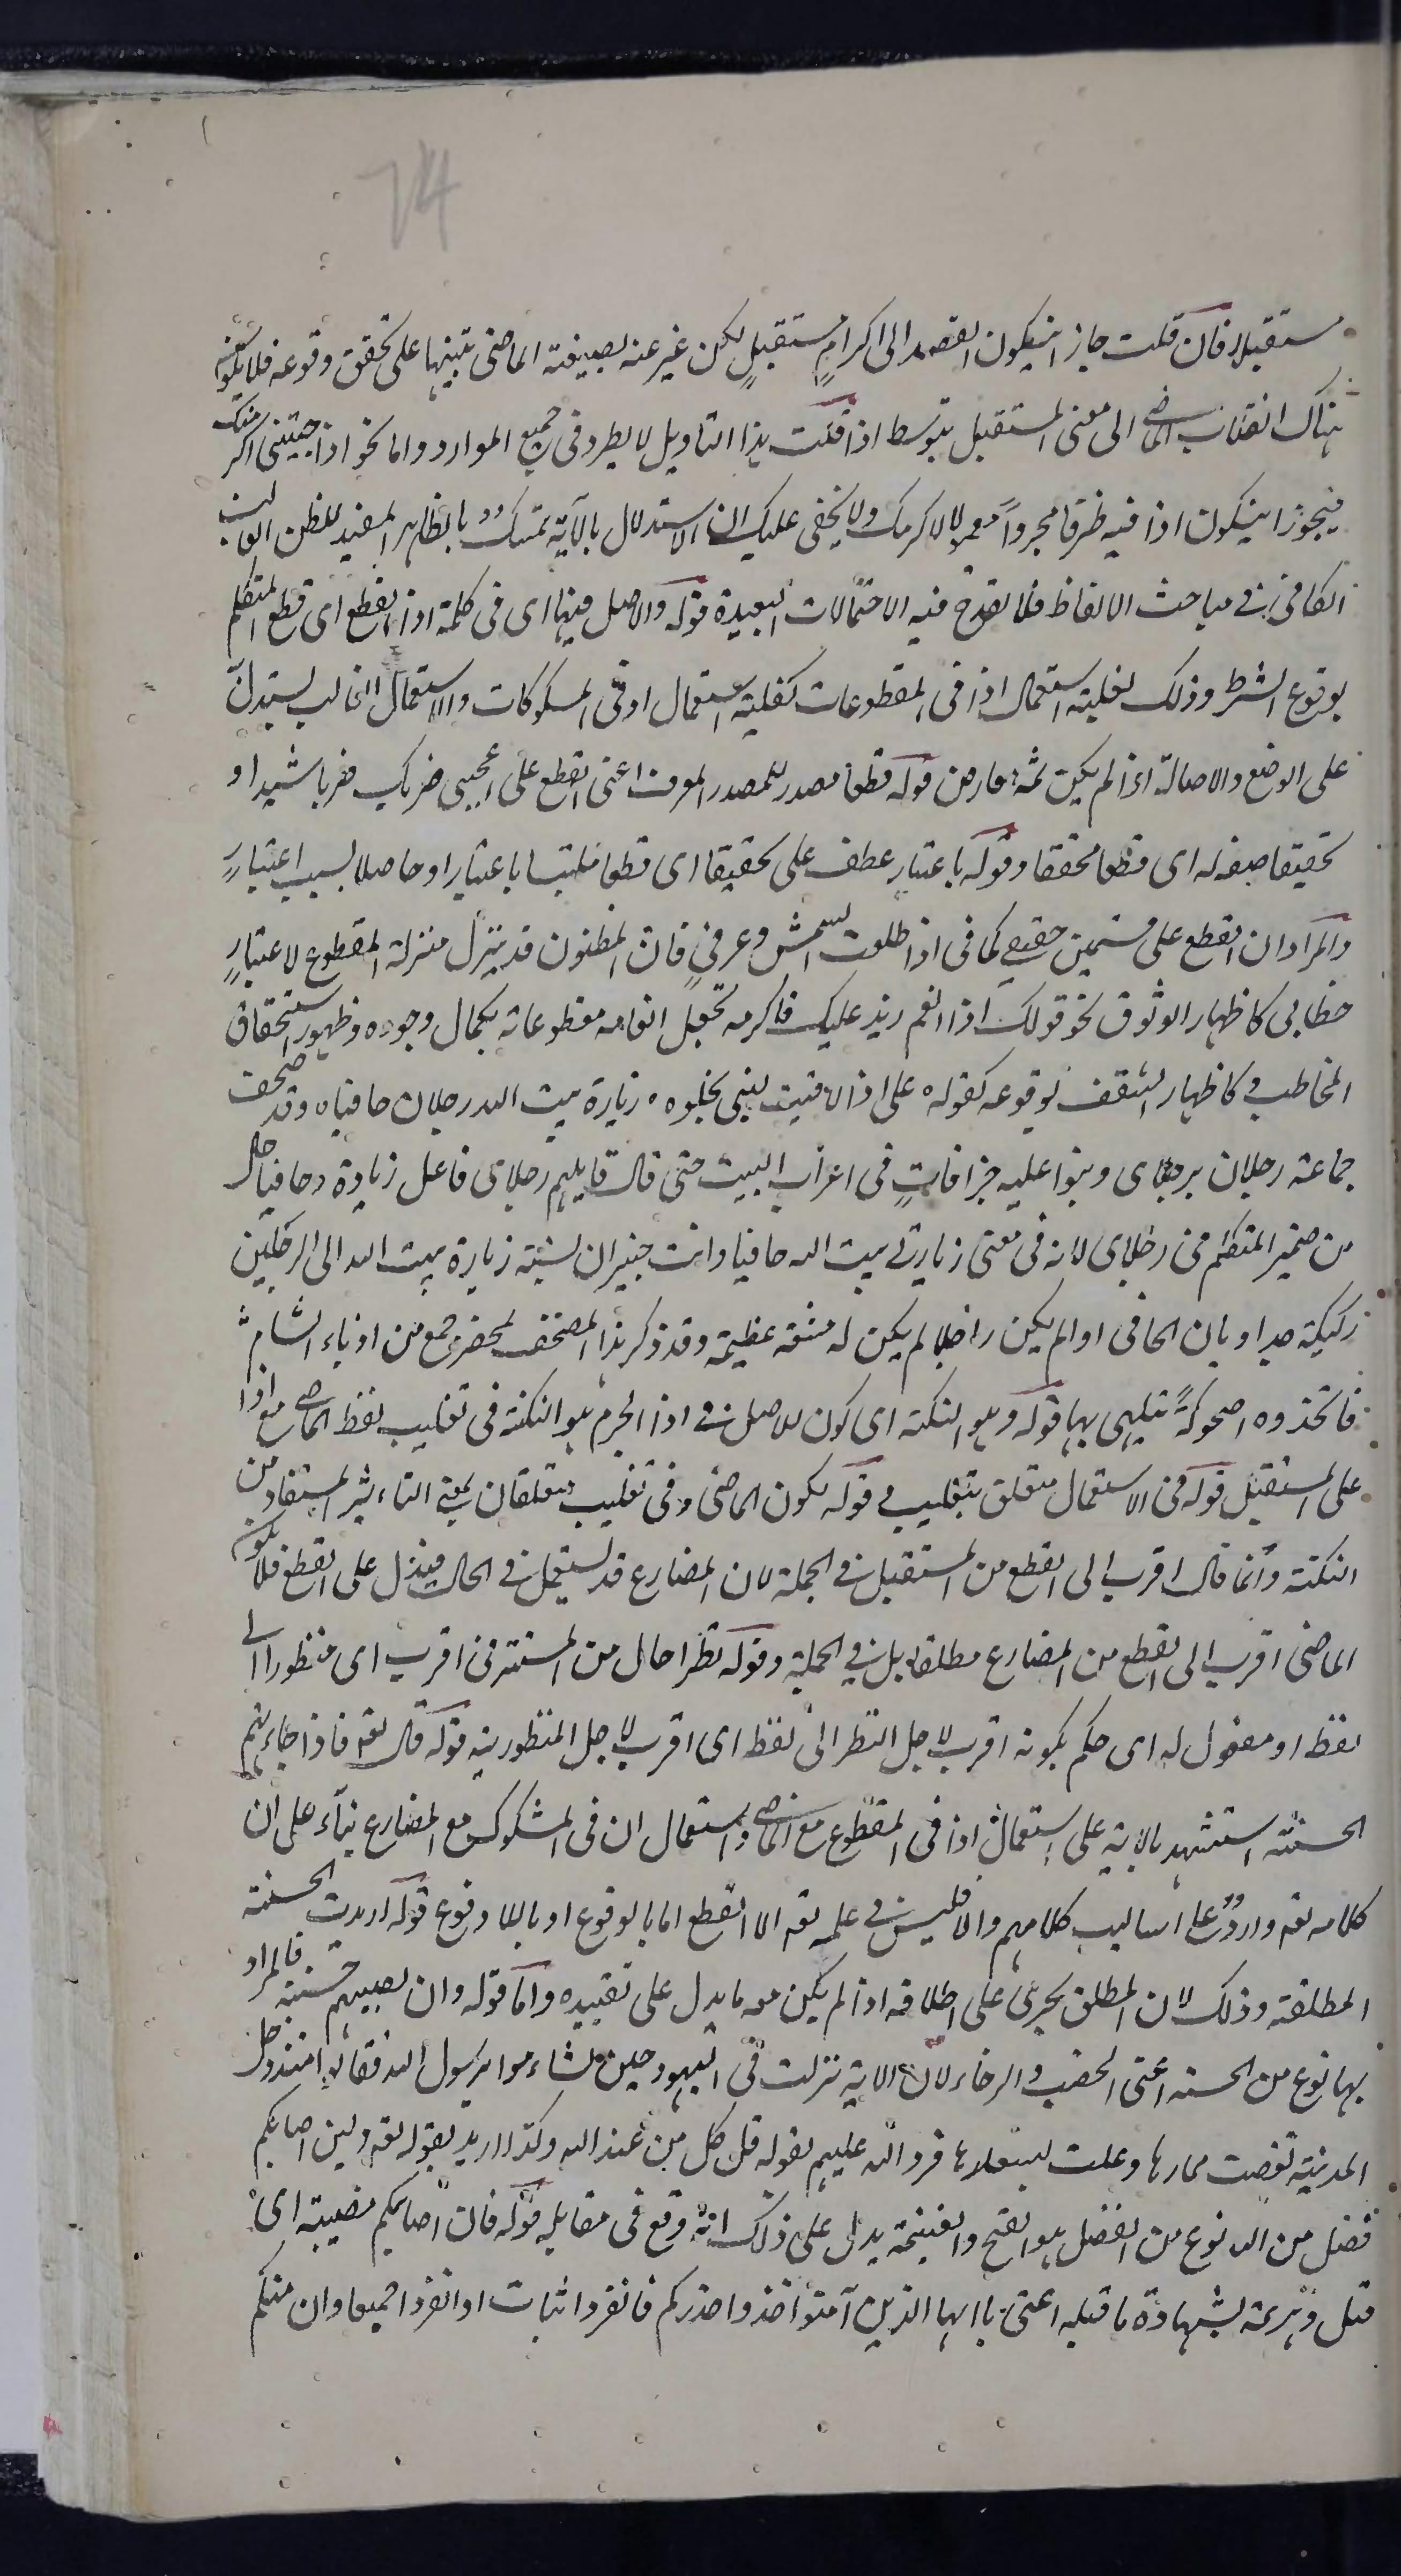 74
مستقبلا فان قلت جاز ان يكون القصد الى اكرام مستقبل لكن عبر عنه بصيغة الماضى تنبيها على تحقق وقوعه فلا يكون
هناك انقلاب الماضي الى معنى المستقبل بتوسط اذا قلت هذا التاويل لا يطرد فى جميع الموارد واما نحو اذا جئتنى اكرمتك
فيجوز ان يكون اذا فيه ظرفا مجردا معمولا لاكرمك ولا يخفى عليك ان الاستدلال بالآية تمسك بالظاهر المفيد للظن الغالب
الكافى في مباحث الالفاظ فلا يقدح فيه الاحتمالات البعيدة قوله والاصل فيها اى فى كلمة اذا القطع اى قطع المتكلم
بوقوع الشرط وذلك لغلبة استعمال اذا فى المقطوعات كغلبة استعمال ان فى المشكوكات والاستعمال الغالب يستدل
على الوضع والاصالة اذا لم يكن ثمة معارض قوله قطعا مصدر للمصدر المعرف اعنى القطع على اعجبنى ضربك ضربا شديدا و
تحقيقا صفة له اى قطعا محققا وقوله باعتبار عطف على تحقيقا اى قطعا ملتبسا باعتبار او حاصلا بسبب اعتبار
والمراد ان القطع على قسمين حقيقي كما فى اذا طلعت الشمش وعرفي فان المظنون قد ينزل منزلة المقطوع لاعتبار
خطابى كاظهار الوثوق نحو قولك اذا انعم زيد عليك فاكرمه تجعل انعامه مقطوعا به بكمال وجوده وظهور استحقاق
المخاطب وكاظهار الشغف بوقوعه كقوله على اذا لاقيت ليلى بخلوة زيارة بيت الله رجلان حافيا ه وقد صحف
جماعة رجلان برجلاى وبنوا عليه خرافات فى اعراب البيت حتى قال قايلهم رجلاى فاعل زيارة وحافيا حال
من ضمير المتكلم فى رجلاى لانه فى معنى زيارتى بيت الله حافيا وانت خبير ان نسبة زيارة بيت الله الى الرجلين
ركيكة جدا وبان الحافى اذا لم يكن راجلا لم يكن له مشقة عظيمة وقد ذكر هذا المصحف بمحضر جمع من ادباء الشام
فاتخذوه اضحوكة يتلهى بها قوله وهو النكتة اى كون الاصل في اذا الجزم هو النكتة فى تغليب لفظ الماضي مع اذا
على المستقبل قوله فى الاستعمال متعلق بتغليب وقوله لكون الماضى وفى تغليب متعلقان بمعنى التاثير المستفاد من
النكتة وانما قال اقرب الى القطع من المستقبل في الجملة لان المضارع قد يستعمل في الحال فيدل على القطع فلا يكون
الماضى اقرب الى القطع من المضارع مطلقا بل في الجملة وقوله نظرا حال من المستتر فى اقرب اى منظورا الى
لفظ او مفعول له اى حكم بكونه اقرب لاجل النظر الى لفظ اى اقرب لاجل المنظورية قوله قال تعم فاذا جاءتهم
الحسنة استشهد بالاية على استعمال اذا فى المقطوع مع الماضي واستعمال ان فى المشكوك مع المضارع بناء على ان
كلامه تعم وارد على اساليب كلامهم والا فليس في علمه تعم الا القطع اما بالوقوع او باللا وقوع قوله اريدت الحسنة
المطلقة وذلك لان المطلق يجرى على اطلاقه اذا لم يكن معه ما يدل على تقييده واما قوله وان تصيبهم حسنة فالمراد
بها نوع من الحسنة اعنى الخصب والرخاء لان الاية نزلت فى اليهود حين تشاءموا برسول الله فقالوا منذ دخل
المدينة نقصت ثمارها وغلت اسعارها فرد الله عليهم بقوله قل كل من عند الله وكذا اريد بقوله تعم ولين اصابكم
فضل من الله نوع من الفضل هو الفتح والغنيمة يدل على ذلك انه وقع فى مقابله قوله فان اصابكم مصيبة اى
قتل وهزيمة بشهادة ما قبله اعنى يا ايها الذين آمنوا خذوا حذركم فانفروا ثبات او انفروا جميعا وان منكم